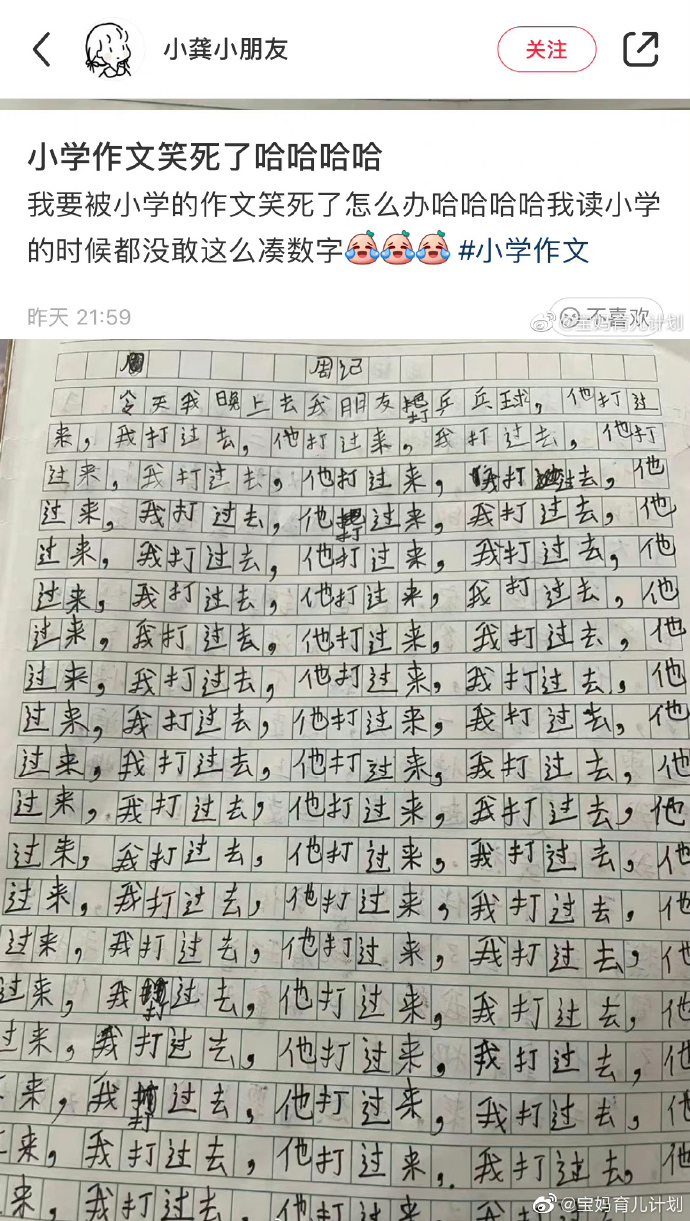 小龚小朋友
关注
小学作文笑死了哈哈哈哈
我要被小学的作文笑死了怎么办哈哈哈哈我读小学
的时候都没敢这么凑数字😂😂😂 #小学作文
昨天 21:59
不喜欢
@宝妈育儿计划
周记
今天我晚上去我朋友打乒乓球，他打过
来，我打过去，他打过来，我打过去，他打
过来，我打过去，他打过来，我打过去，他
过来，我打过去，他打过来，我打过去，他
过来，我打过去，他打过来，我打过去，他
过来，我打过去，他打过来，我打过去，他
过来，我打过去，他打过来，我打过去，他
过来，我打过去，他打过来，我打过去，他
过来，我打过去，他打过来，我打过去，他
过来，我打过去，他打过来，我打过去，他
过来，我打过去，他打过来，我打过去，他
过来，我打过去，他打过来，我打过去，他
过来，我打过去，他打过来，我打过去，他
过来，我打过去，他打过来，我打过去，他
过来，我打过去，他打过来，我打过去，他
过来，我打过去，他打过来，我打过去，他
来，我打过去，他打过来，我打过去，他
来，我打过去，他打过来，我打过去，他
来，我打过去，他打过来，我打过
@宝妈育儿计划